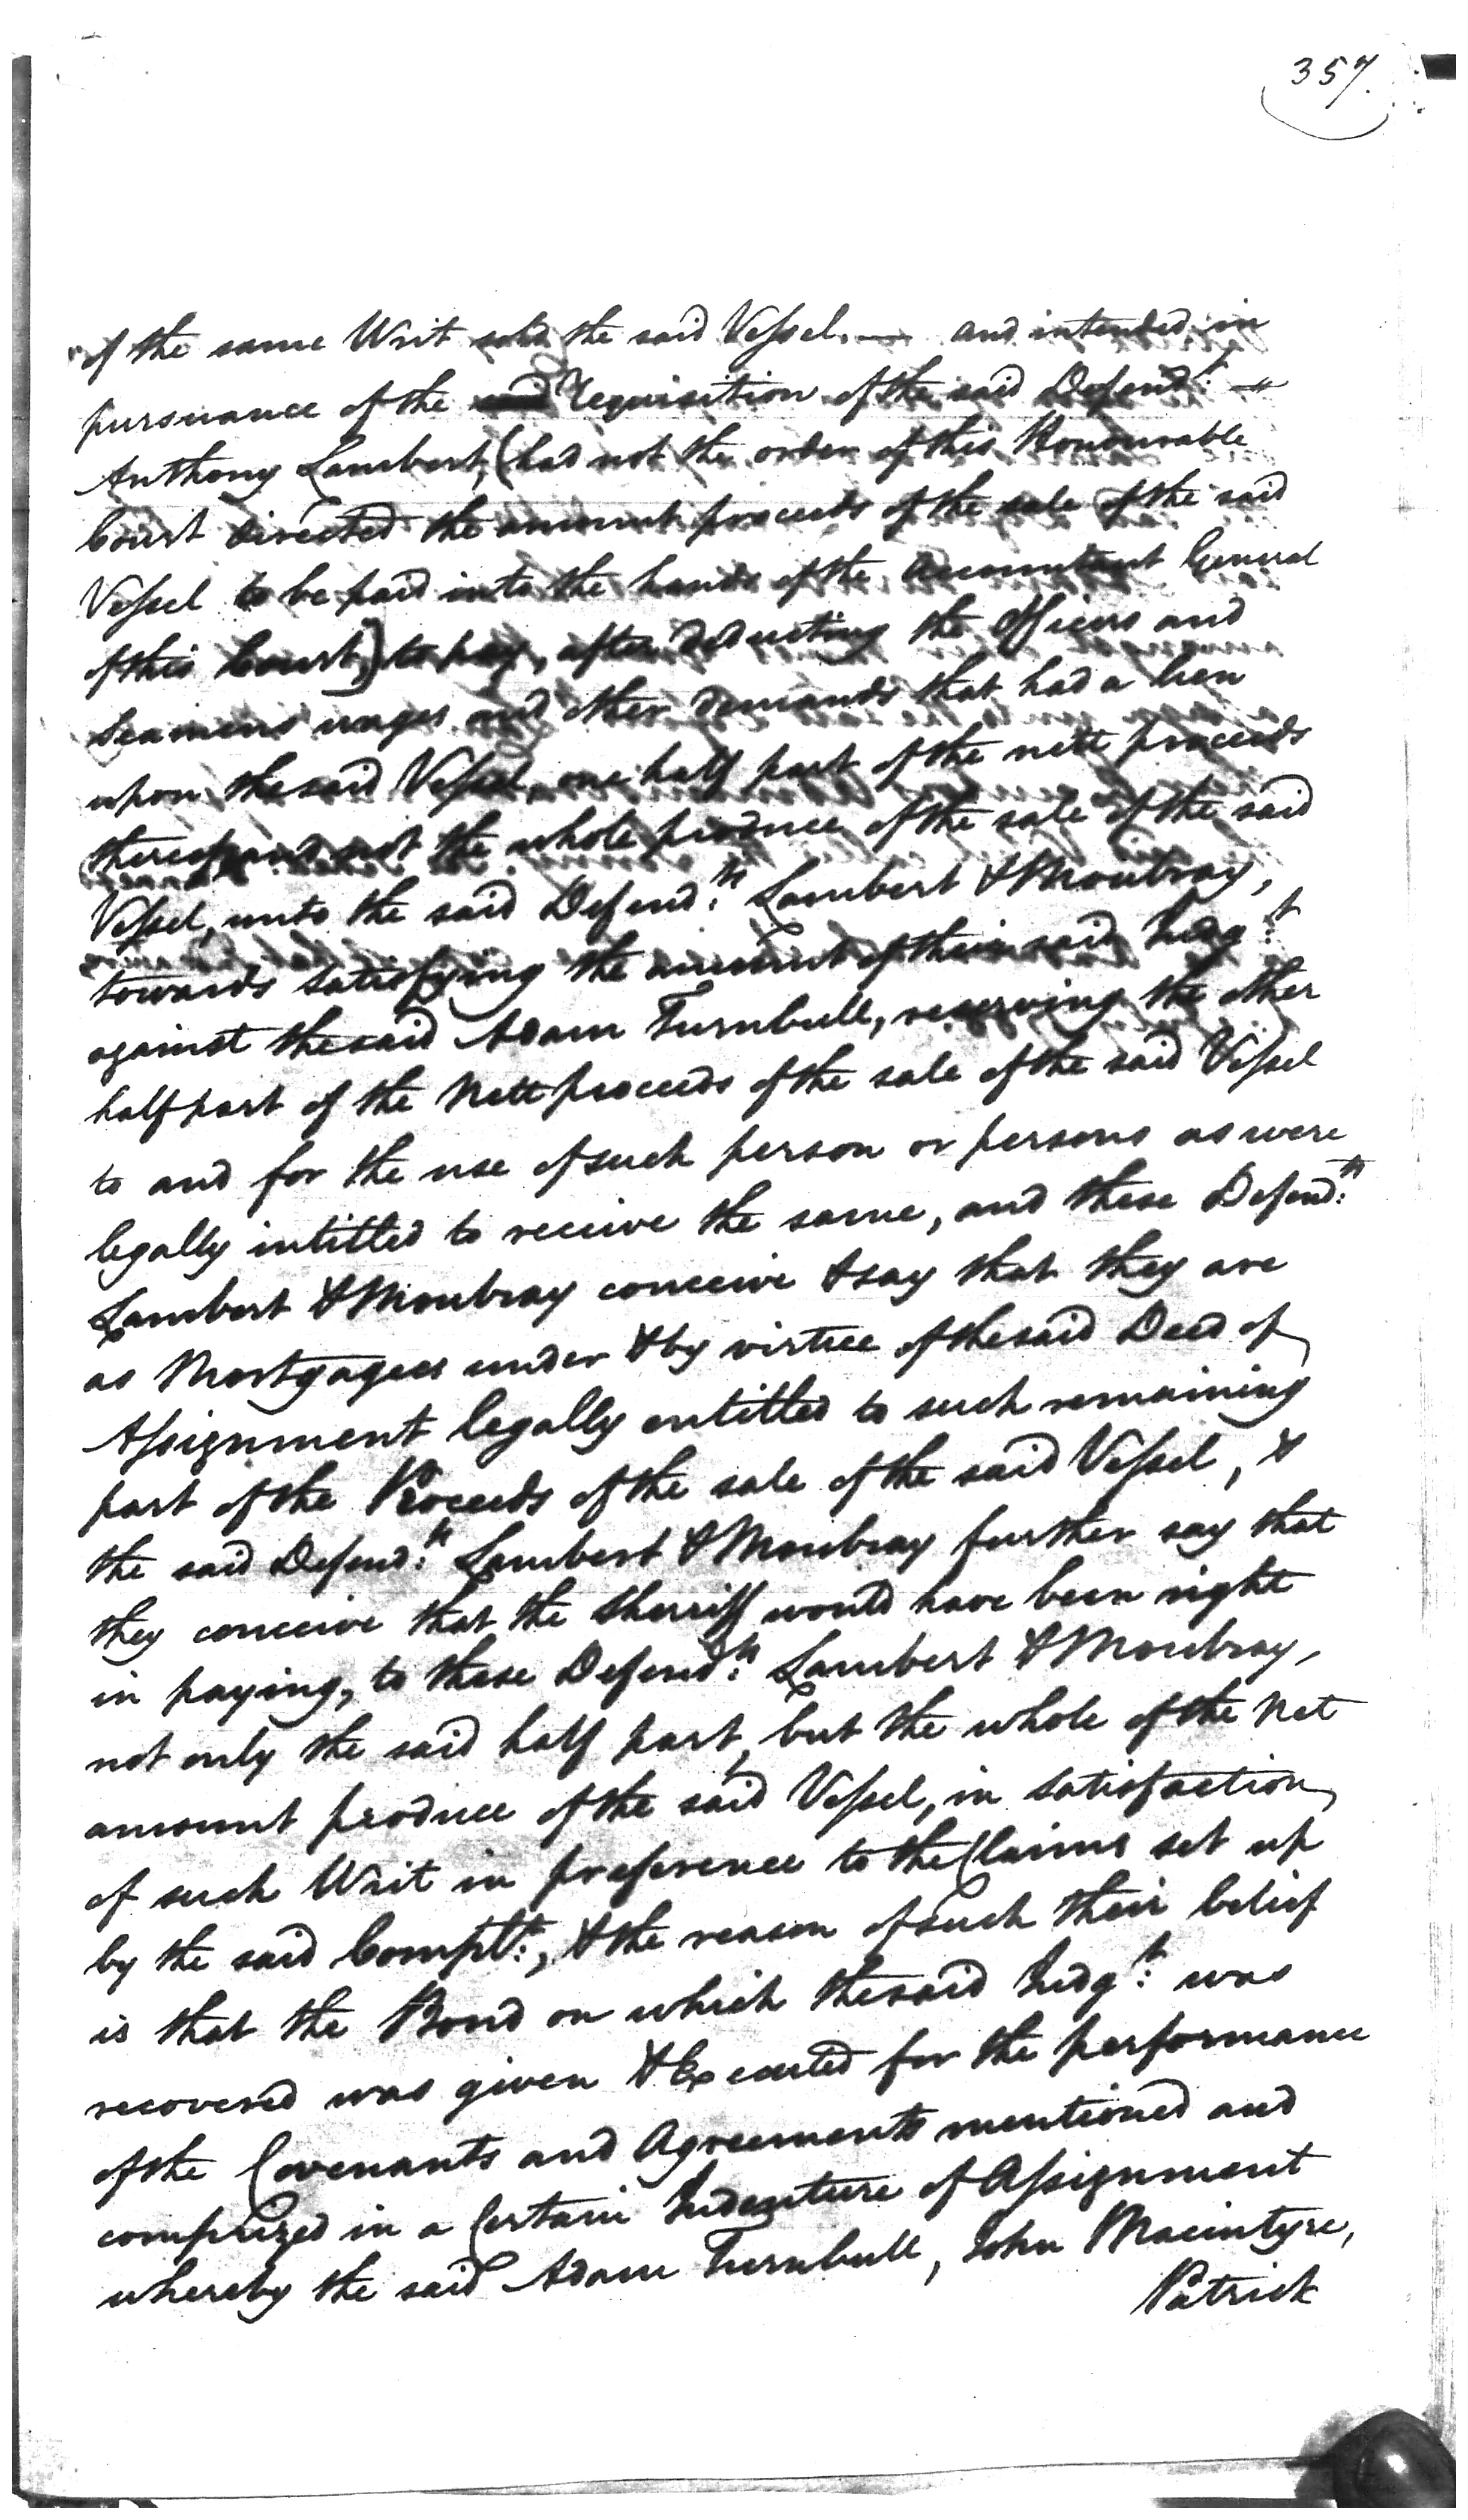 357.
of the same Writ sold the said Vessel. — and intended in
pursuance of the Requisition of the said Defend.t
Anthony Lambert, (had not the order of this Honourable
Court directed the amount proceeds of the sale of the said
Vessel to be paid into the hands of the Accountant General
of this Court) to pay, after deducting the Officers and
Seamens wages and other demands that had a lien
upon the said Vessel, one half part of the nett proceeds
thereof and not the whole produce of the sale of the said
Vessel, unto the said Defend.ts Lambert & Moubray,
towards satisfying the amount of their said Judg.t
against the said Adam Turnbull, reserving the other
half part of the Nett proceeds of the sale of the said Vessel
to and for the use of such person or persons as were
legally intitled to receive the same, and these Defend.ts
Lambert & Moubray conceive & say that they are
as Mortgagees under & by virtue of the said Deed of
Assignment legally entitled to such remaining
part of the Proceeds of the sale of the said Vessel, &
the said Defend.ts Lambert & Moubray further say that
they conceive that the Sherriff would have been right
in paying, to these Defend.ts Lambert & Moubray,
not only the said half part, but the whole of the Net
amount produce of the said Vessel, in satisfaction
of such Writ in preference to the Claims set up
by the said Complt.s, & the reason of such their belief
is that the Bond on which the said Judg.t was
recovered was given & Executed for the performance
of the Covenants and Agreements mentioned and
comprized in a Certain Indenture of Assignment
whereby the said Adam Turnbull, John Macintyre,
Patrick